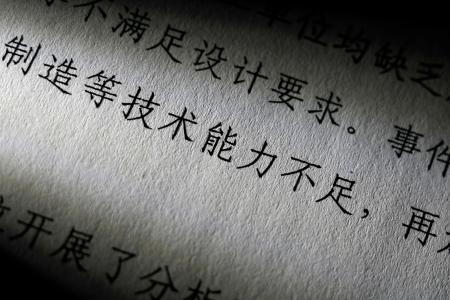 不满足设计要求。事件
制造等技术能力不足，再
开展了分析